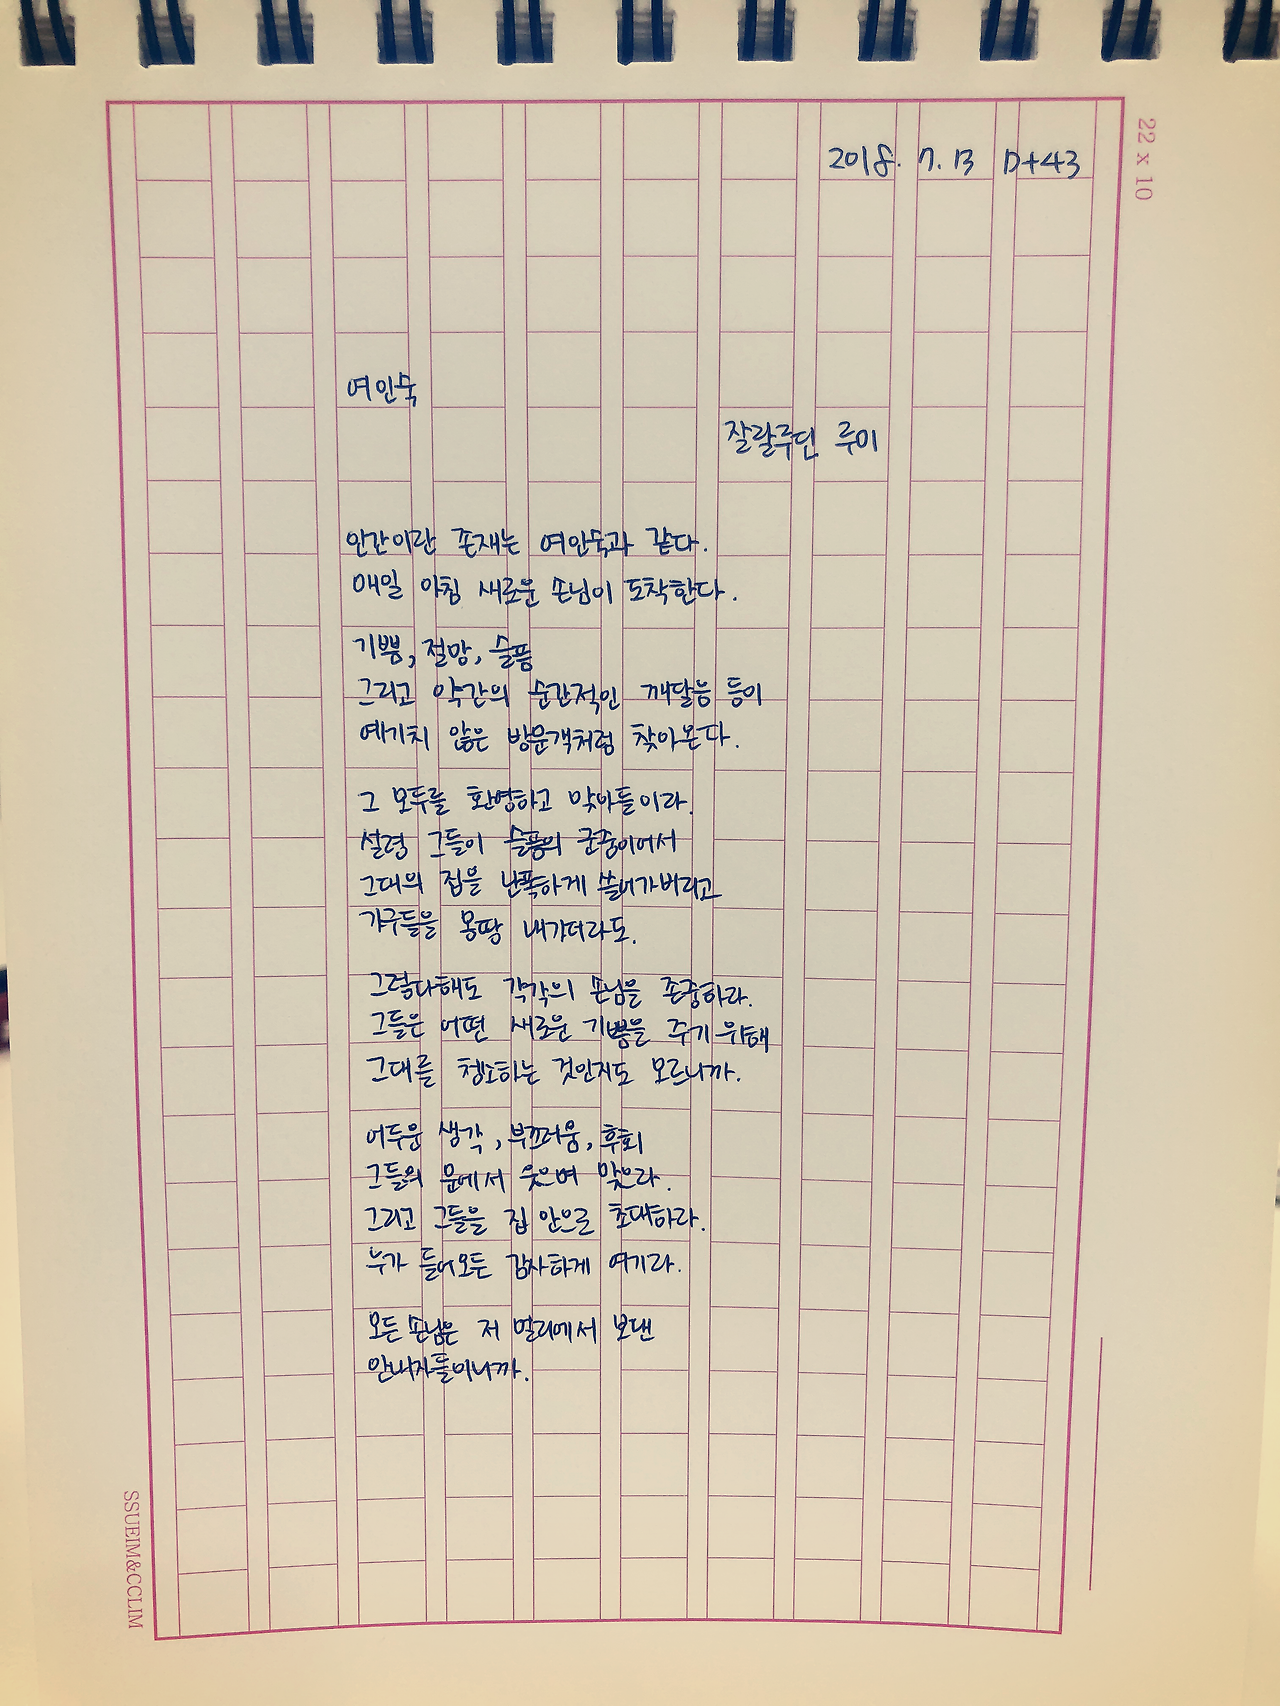 2018. 7. 13 D+43
22 x 10
여인숙
잘랄루딘 루미
인간이란 존재는 여인숙과 같다.
매일 아침 새로운 손님이 도착한다.
기쁨, 절망, 슬픔
그리고 약간의 순간적인 깨달음 등이
예기치 않은 방문객처럼 찾아온다.
그 모두를 환영하고 맞아들이라.
설령 그들이 슬픔의 군중이어서
그대의 집을 난폭하게 쓸어가버리고
가구들을 몽땅 내가더라도.
그렇다해도 각각의 손님을 존중하라.
그들은 어떤 새로운 기쁨을 주기 위해
그대를 청소하는 것인지도 모르니까.
어두운 생각, 부끄러움, 후회
그들의 문에서 웃으며 맞으라.
그리고 그들을 집 안으로 초대하라.
누가 들어오든 감사하게 여기라.
모든 손님은 저 멀리에서 보낸
안내자들이니까.
SSUEIM&CCLIM